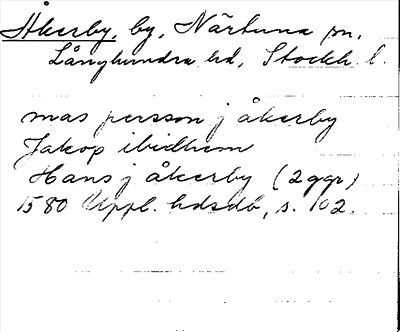 Åkerby, by, Närtuna sn,
Långhundra hd, Stockh. l.
mas persson j åkerby
Jakop ibidhem
Hans j åkerby (2 ggr)
1580 Uppl. hdsdb, s. 102.